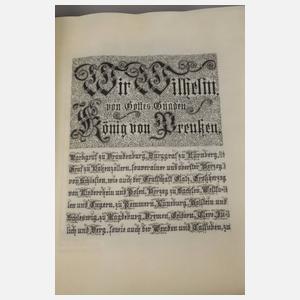 Wir Wilhelm,
von Gottes Gnaden
König von Preußen,
Markgraf zu Brandenburg, Burggraf zu Nürnberg,
Graf zu Hohenzollern, souverainer und oberster Herzog
von Schlesien, wie auch der Grafschaft Glatz, Großherzog
vom Niederrhein und Posen, Herzog zu Sachsen, Westfa-
len und Engern, zu Pommern, Lüneburg, Holstein und
Schleswig, zu Magdeburg, Bremen, Geldern, Cleve, Jü-
lich und Berg, sowie auch der Wenden und Cassuben, zu